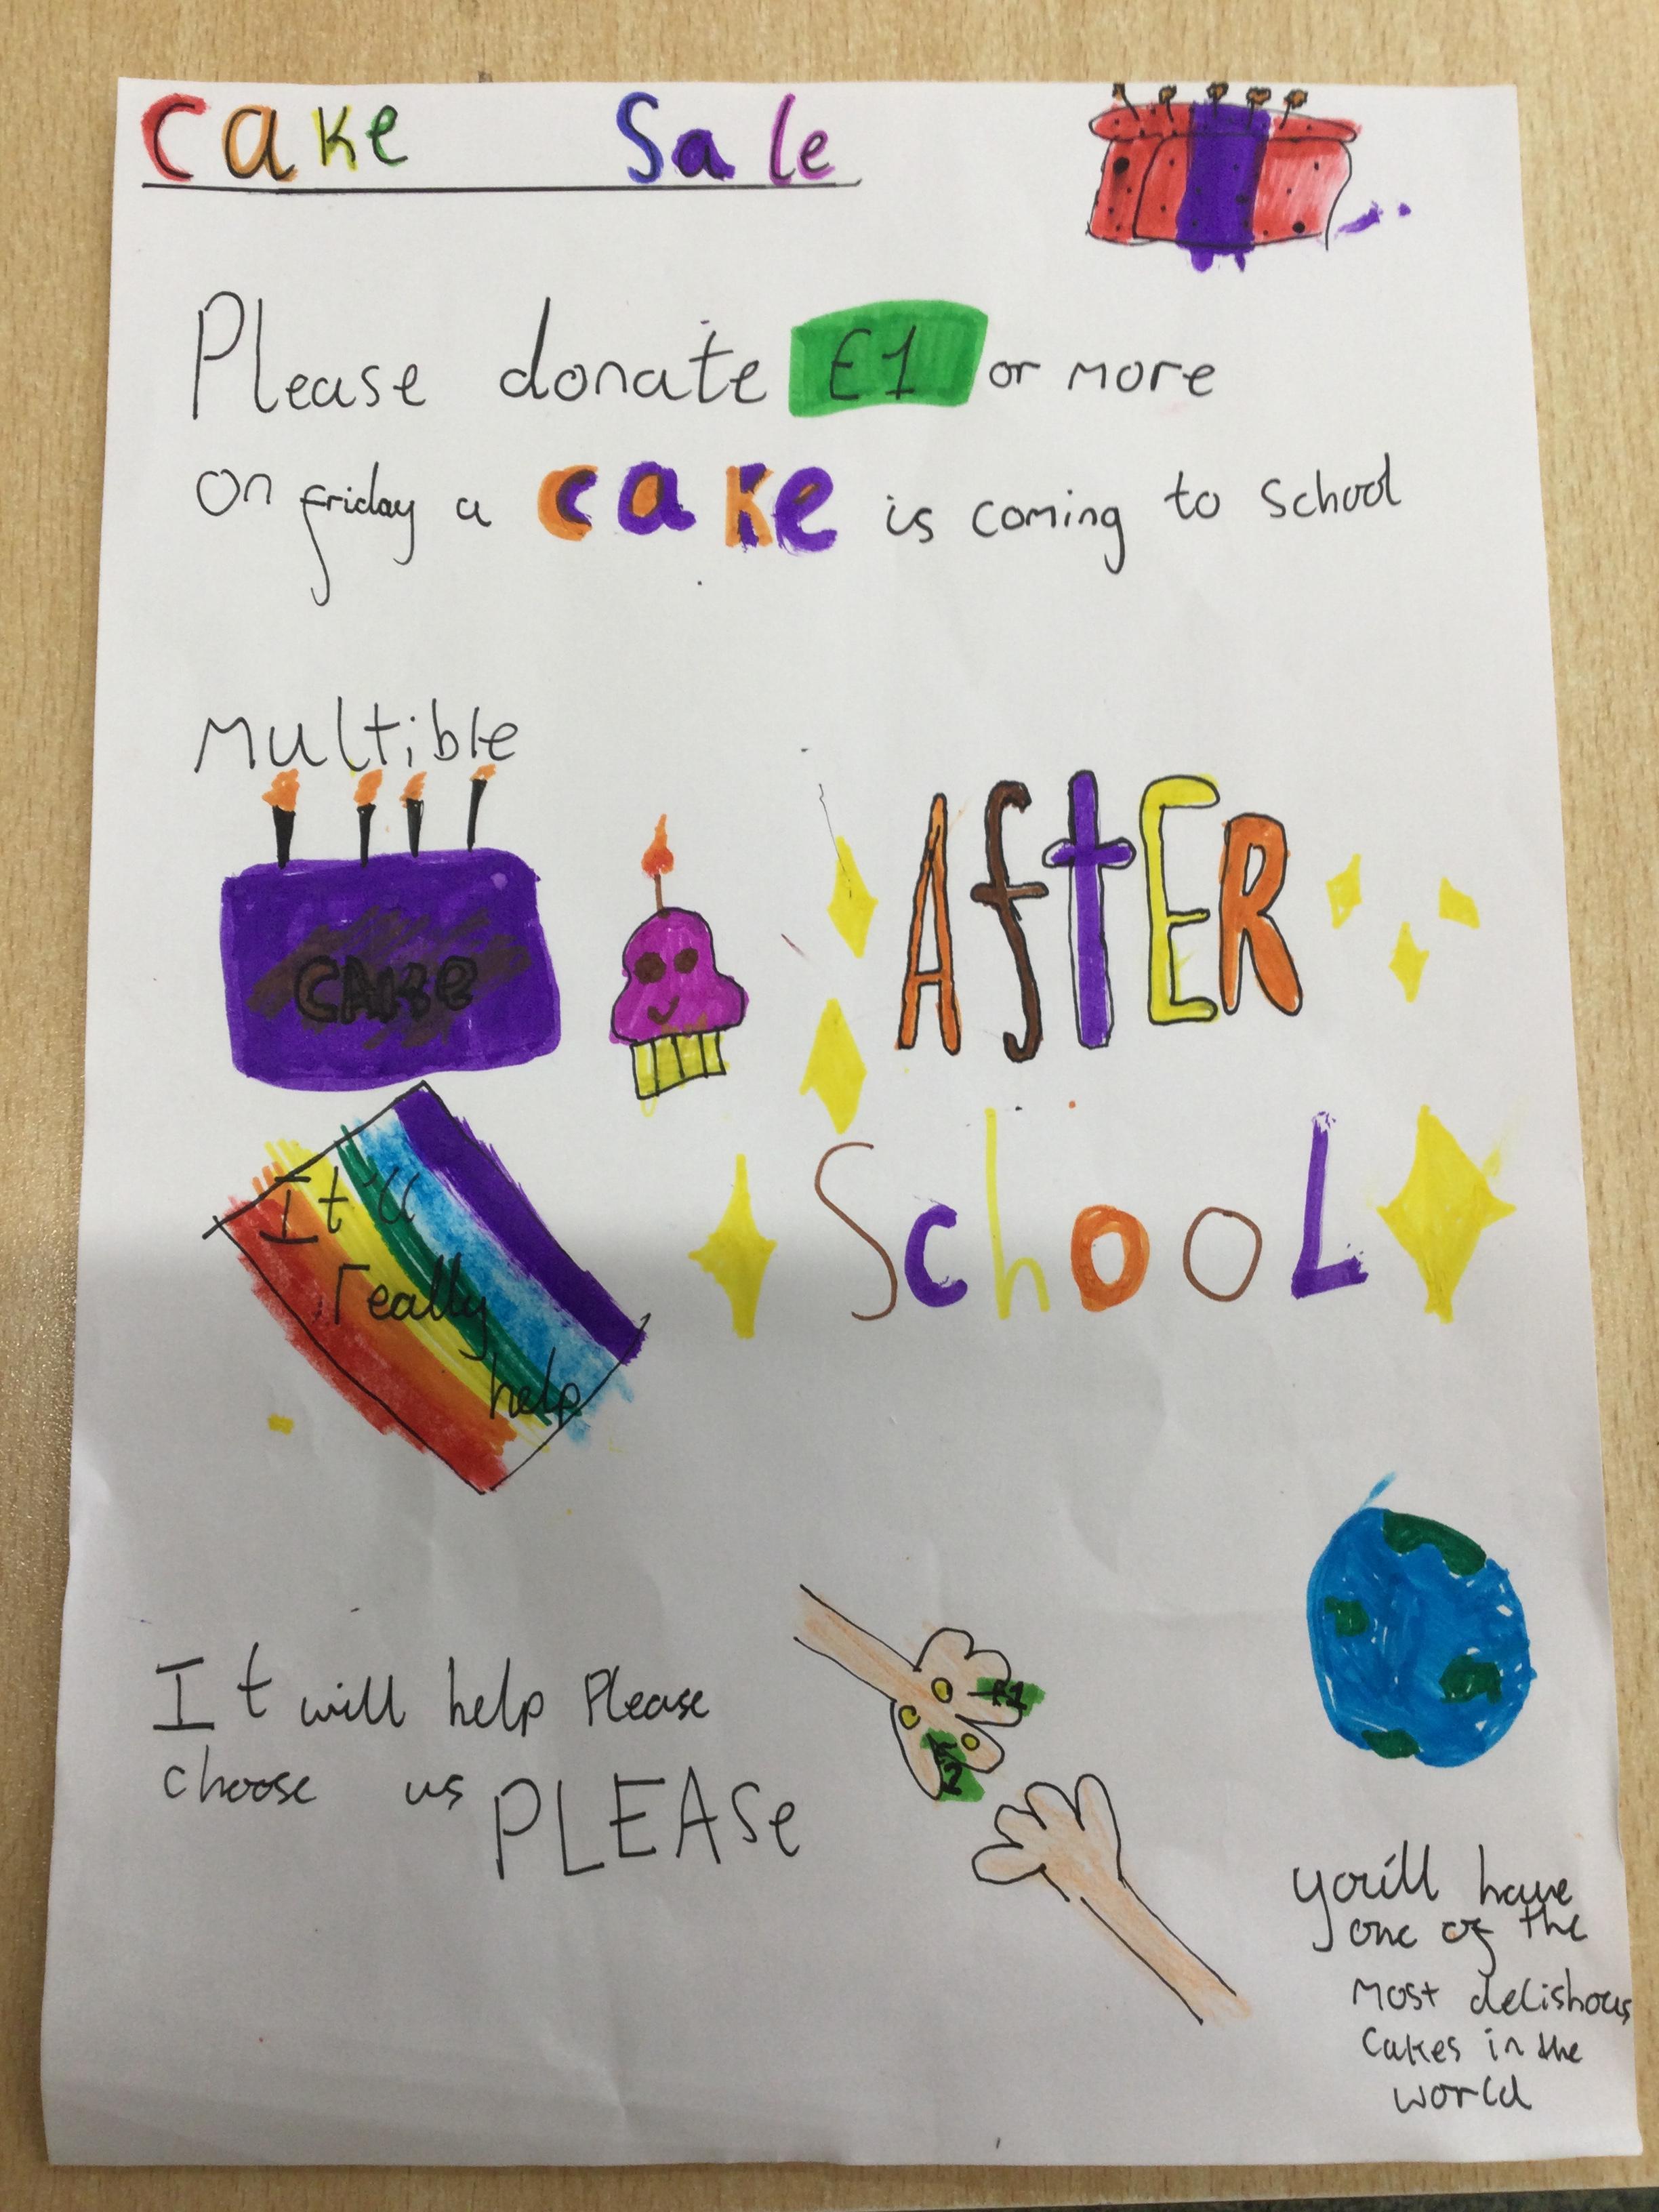 Cake Sale
Please donate £1 or more
on friday a cake is coming to school
Multible
CAKe
AftER
SchooL
It'll
really
help
It will help Please
choose us PLEASe
£1
£2
you'll have
one of the
most delishous
cakes in the
world